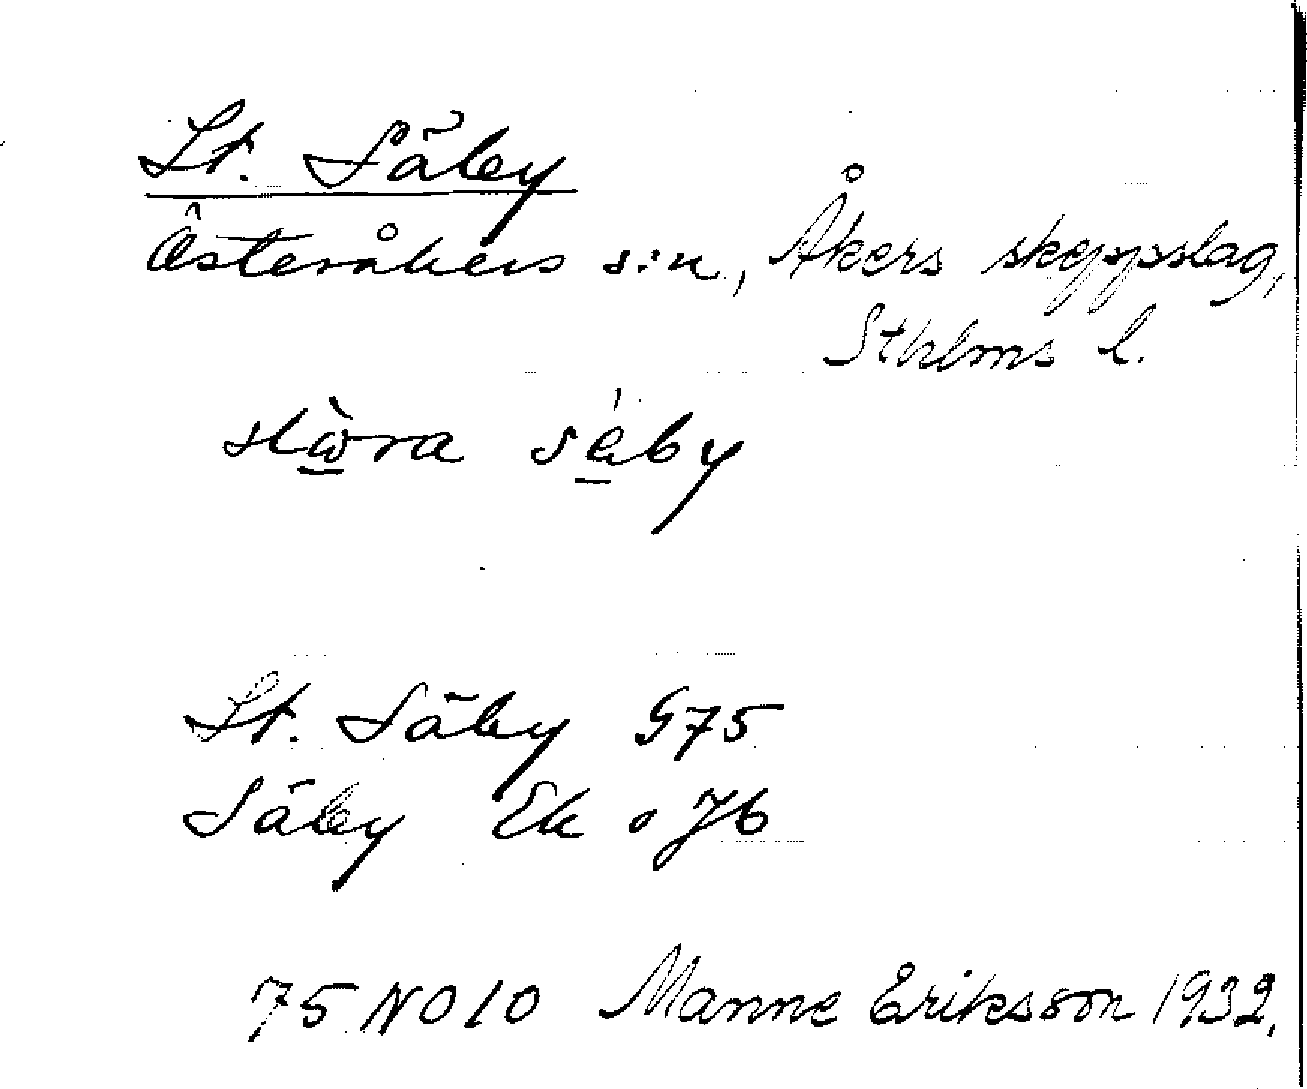 St. Säby
Österåkers s:n, Åkers skeppslag,
Sthlms l.
stὼra sába̶y
St. Säby G75
Säby Ek o Jb
75 NO 10 Manne Eriksson 1932.